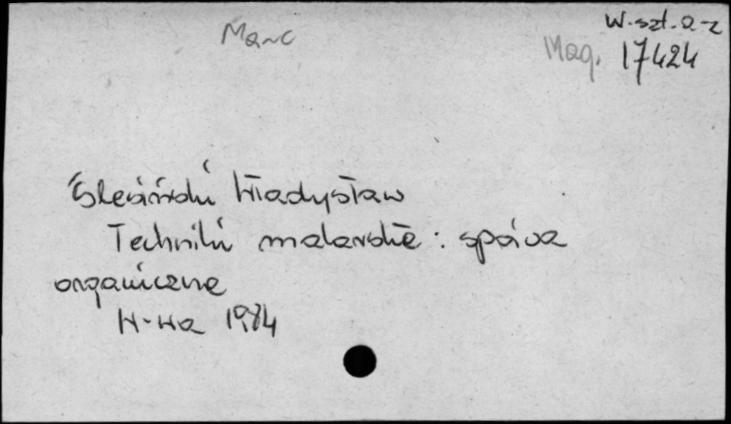 Marc
W-szt. a-z
Mag. 17424
Ślesiński Władysław
Techniki malarskie : spoiwa
organiczne
W-wa 1984